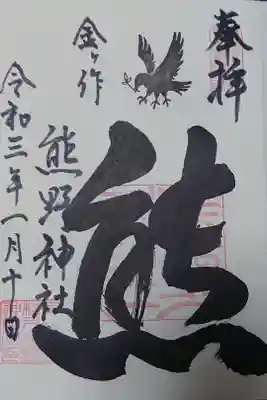 奉拝
金ヶ作
熊
熊野神社
令和三年一月十日